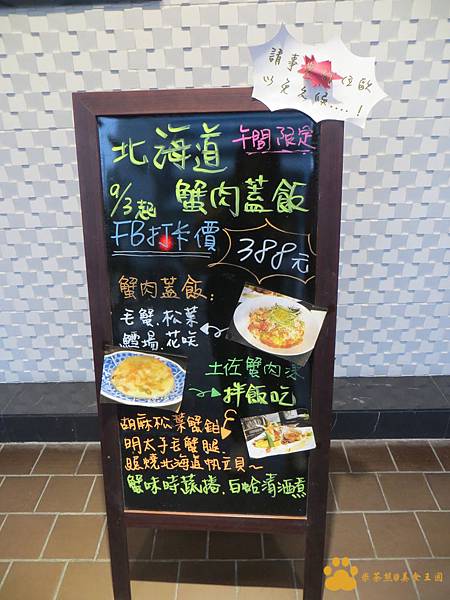 請事先 位歐
以免久候....!
午間限定
北海道
9/3起 蟹肉蓋飯
FB打卡價
388元
蟹肉蓋飯:
毛蟹.松葉
鱈場.花咲
土佐蟹肉凍
拌飯吃
胡麻松葉蟹鉗
明太子毛蟹腿
燒北海道帆立貝~
蟹味時蔬捲.白蛤清酒煮
米茶熊@美食王國